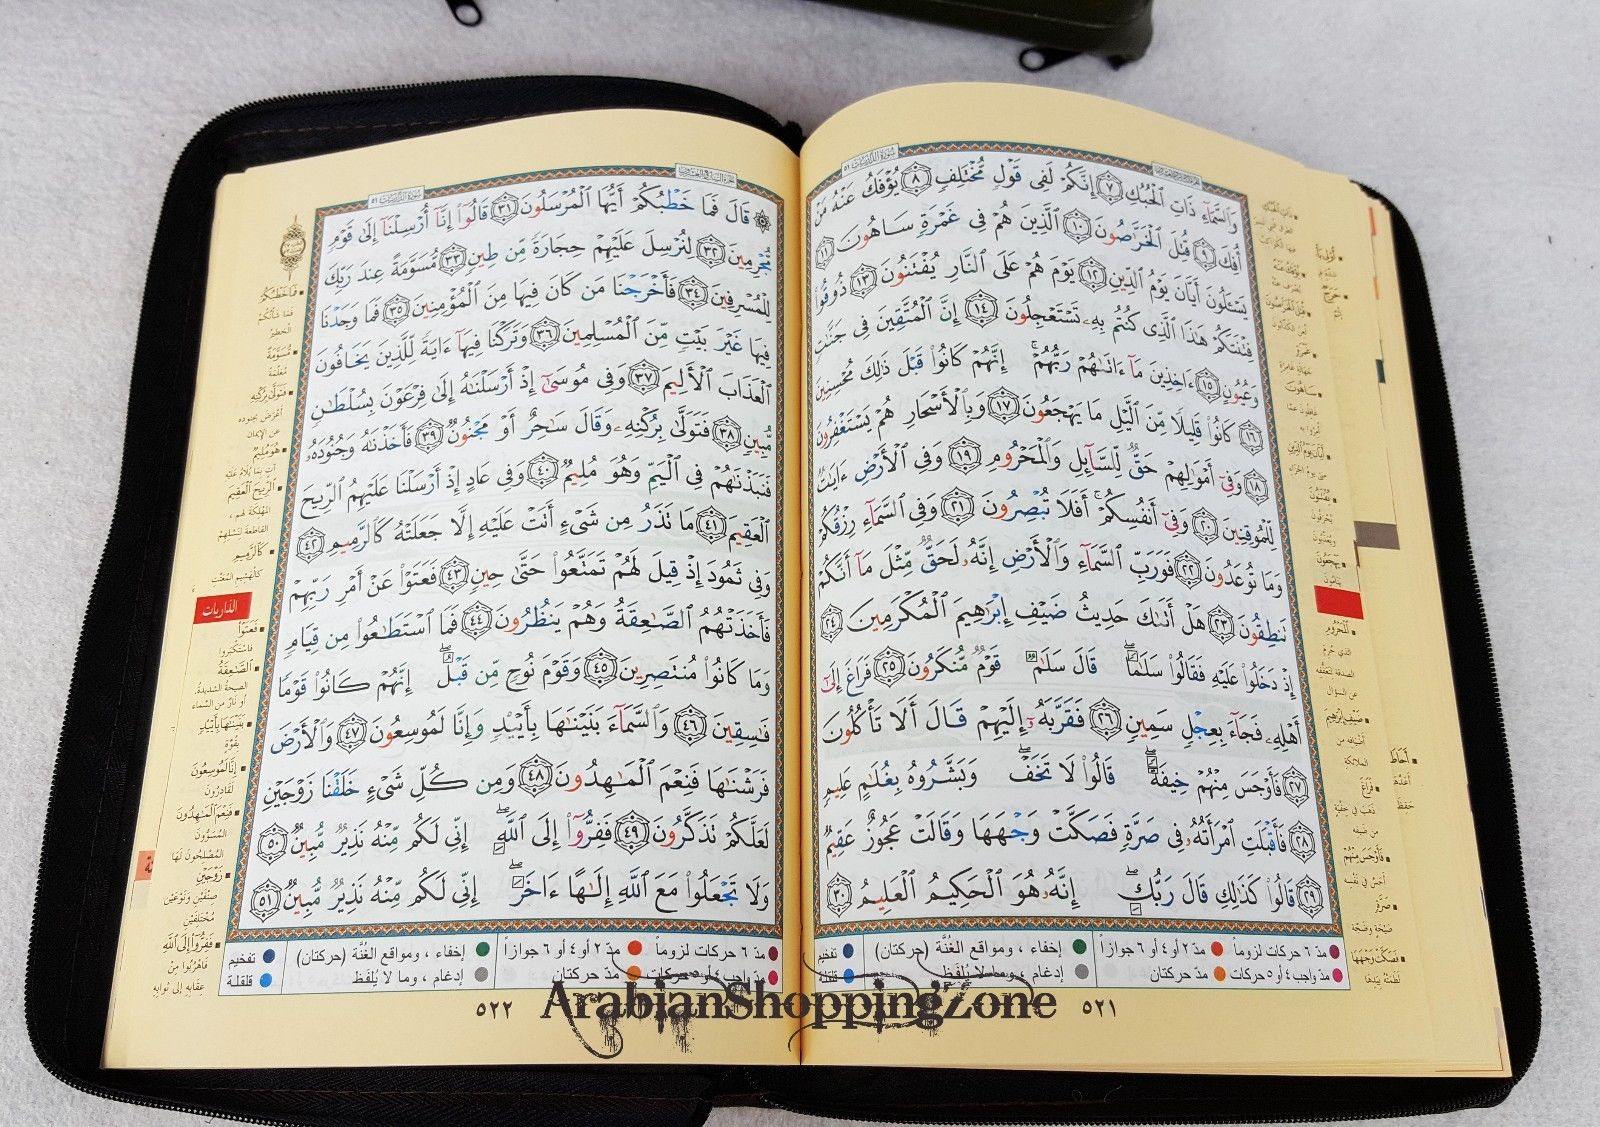 وَالسَّمَاءِ ذَاتِ الْحُبُكِ ٧ إِنَّكُمْ لَفِى قَوْلٍ مُّخْتَلِفٍ ٨ يُؤْفَكُ عَنْهُ مَنْ
أُفِكَ ٩ قُتِلَ الْخَرَّاصُونَ ١٠ الَّذِينَ هُمْ فِى غَمْرَةٍ سَاهُونَ ١١
يَسْـَٔلُونَ أَيَّانَ يَوْمُ الدِّينِ ١٢ يَوْمَ هُمْ عَلَى النَّارِ يُفْتَنُونَ ١٣ ذُوقُوا
فِتْنَتَكُمْ هَٰذَا الَّذِى كُنتُم بِهِۦ تَسْتَعْجِلُونَ ١٤ إِنَّ الْمُتَّقِينَ فِى جَنَّٰتٍ
وَعُيُونٍ ١٥ ءَاخِذِينَ مَا ءَاتَىٰهُمْ رَبُّهُمْ ۚ إِنَّهُمْ كَانُوا قَبْلَ ذَٰلِكَ مُحْسِنِينَ
١٦ كَانُوا قَلِيلًا مِّنَ الَّيْلِ مَا يَهْجَعُونَ ١٧ وَبِالْأَسْحَارِ هُمْ يَسْتَغْفِرُونَ
١٨ وَفِى أَمْوَٰلِهِمْ حَقٌّ لِّلسَّائِلِ وَالْمَحْرُومِ ١٩ وَفِى الْأَرْضِ ءَايَٰتٌ
لِّلْمُوقِنِينَ ٢٠ وَفِى أَنفُسِكُمْ ۚ أَفَلَا تُبْصِرُونَ ٢١ وَفِى السَّمَاءِ رِزْقُكُمْ
وَمَا تُوعَدُونَ ٢٢ فَوَرَبِّ السَّمَاءِ وَالْأَرْضِ إِنَّهُۥ لَحَقٌّ مِّثْلَ مَا أَنَّكُمْ
تَنطِقُونَ ٢٣ هَلْ أَتَىٰكَ حَدِيثُ ضَيْفِ إِبْرَٰهِيمَ الْمُكْرَمِينَ ٢٤
إِذْ دَخَلُوا عَلَيْهِ فَقَالُوا سَلَٰمًا ۖ قَالَ سَلَٰمٌ قَوْمٌ مُّنكَرُونَ ٢٥ فَرَاغَ إِلَىٰ
أَهْلِهِۦ فَجَاءَ بِعِجْلٍ سَمِينٍ ٢٦ فَقَرَّبَهُۥ إِلَيْهِمْ قَالَ أَلَا تَأْكُلُونَ
٢٧ فَأَوْجَسَ مِنْهُمْ خِيفَةً ۖ قَالُوا لَا تَخَفْ ۖ وَبَشَّرُوهُ بِغُلَٰمٍ عَلِيمٍ
٢٨ فَأَقْبَلَتِ امْرَأَتُهُۥ فِى صَرَّةٍ فَصَكَّتْ وَجْهَهَا وَقَالَتْ عَجُوزٌ عَقِيمٌ
٢٩ قَالُوا كَذَٰلِكِ قَالَ رَبُّكِ ۖ إِنَّهُۥ هُوَ الْحَكِيمُ الْعَلِيمُ ٣٠
مدّ ٦ حركات لزوماً مدّ ٢ أو ٤ أو ٦ جوازاً إخفاء ، ومواقع الغُنَّة (حركتان) تفخيم
مدّ واجب ٤ أو ٥ حركات مدّ حركتان إدغام ، وما لا يُلفَظ قلقلة
٥٢١
۞ قَالَ فَمَا خَطْبُكُمْ أَيُّهَا الْمُرْسَلُونَ ٣١ قَالُوا إِنَّا أُرْسِلْنَا إِلَىٰ قَوْمٍ
مُّجْرِمِينَ ٣٢ لِنُرْسِلَ عَلَيْهِمْ حِجَارَةً مِّن طِينٍ ٣٣ مُّسَوَّمَةً عِندَ رَبِّكَ
لِلْمُسْرِفِينَ ٣٤ فَأَخْرَجْنَا مَن كَانَ فِيهَا مِنَ الْمُؤْمِنِينَ ٣٥ فَمَا وَجَدْنَا
فِيهَا غَيْرَ بَيْتٍ مِّنَ الْمُسْلِمِينَ ٣٦ وَتَرَكْنَا فِيهَا ءَايَةً لِّلَّذِينَ يَخَافُونَ
الْعَذَابَ الْأَلِيمَ ٣٧ وَفِى مُوسَىٰ إِذْ أَرْسَلْنَٰهُ إِلَىٰ فِرْعَوْنَ بِسُلْطَٰنٍ
مُّبِينٍ ٣٨ فَتَوَلَّىٰ بِرُكْنِهِۦ وَقَالَ سَٰحِرٌ أَوْ مَجْنُونٌ ٣٩ فَأَخَذْنَٰهُ وَجُنُودَهُۥ
فَنَبَذْنَٰهُمْ فِى الْيَمِّ وَهُوَ مُلِيمٌ ٤٠ وَفِى عَادٍ إِذْ أَرْسَلْنَا عَلَيْهِمُ الرِّيحَ
الْعَقِيمَ ٤١ مَا تَذَرُ مِن شَىْءٍ أَتَتْ عَلَيْهِ إِلَّا جَعَلَتْهُ كَالرَّمِيمِ ٤٢
وَفِى ثَمُودَ إِذْ قِيلَ لَهُمْ تَمَتَّعُوا حَتَّىٰ حِينٍ ٤٣ فَعَتَوْا عَنْ أَمْرِ رَبِّهِمْ
فَأَخَذَتْهُمُ الصَّٰعِقَةُ وَهُمْ يَنظُرُونَ ٤٤ فَمَا اسْتَطَٰعُوا مِن قِيَامٍ
وَمَا كَانُوا مُنتَصِرِينَ ٤٥ وَقَوْمَ نُوحٍ مِّن قَبْلُ ۖ إِنَّهُمْ كَانُوا قَوْمًا
فَٰسِقِينَ ٤٦ وَالسَّمَاءَ بَنَيْنَٰهَا بِأَيْي۟دٍ وَإِنَّا لَمُوسِعُونَ ٤٧ وَالْأَرْضَ
فَرَشْنَٰهَا فَنِعْمَ الْمَٰهِدُونَ ٤٨ وَمِن كُلِّ شَىْءٍ خَلَقْنَا زَوْجَيْنِ
لَعَلَّكُمْ تَذَكَّرُونَ ٤٩ فَفِرُّوا إِلَى اللَّهِ ۖ إِنِّى لَكُم مِّنْهُ نَذِيرٌ مُّبِينٌ ٥٠
وَلَا تَجْعَلُوا مَعَ اللَّهِ إِلَٰهًا ءَاخَرَ ۖ إِنِّى لَكُم مِّنْهُ نَذِيرٌ مُّبِينٌ ٥١
فَمَا خَطْبُكُمْ
فما شأنكم
الخطير
مُسَوَّمَةً
معلّمة
فَتَوَلَّىٰ بِرُكْنِهِ
أعرض بجنوده
عن الإيمان
هُوَ مُلِيمٌ
آتٍ بما يُلام عليه
الرِّيحَ الْعَقِيمَ
المهلكة لهم ،
القاطعة لنسلهم
كَالرَّمِيمِ
كالهشيم المفتّت
الذاريات
فَعَتَوْا
فاستكبروا
الصَّٰعِقَةُ
الصيحة الشديدة
أو نار من السماء
بَنَيْنَٰهَا بِأَيْيدٍ
بقوّة
إِنَّا لَمُوسِعُونَ
لقادرون
فَنِعْمَ الْمَٰهِدُونَ
المسوّون
المصلحون لها
زَوْجَيْنِ
صنفين ونوعين
مختلفين
فَفِرُّوا إِلَى اللَّهِ
فاهربوا من
عقابه إلى ثوابه
مدّ ٦ حركات لزوماً مدّ ٢ أو ٤ أو ٦ جوازاً إخفاء ، ومواقع الغُنَّة (حركتان) تفخيم
مدّ واجب ٤ أو ٥ حركات مدّ حركتان إدغام ، وما لا يُلفَظ قلقلة
٥٢٢
ArabianShoppingZone